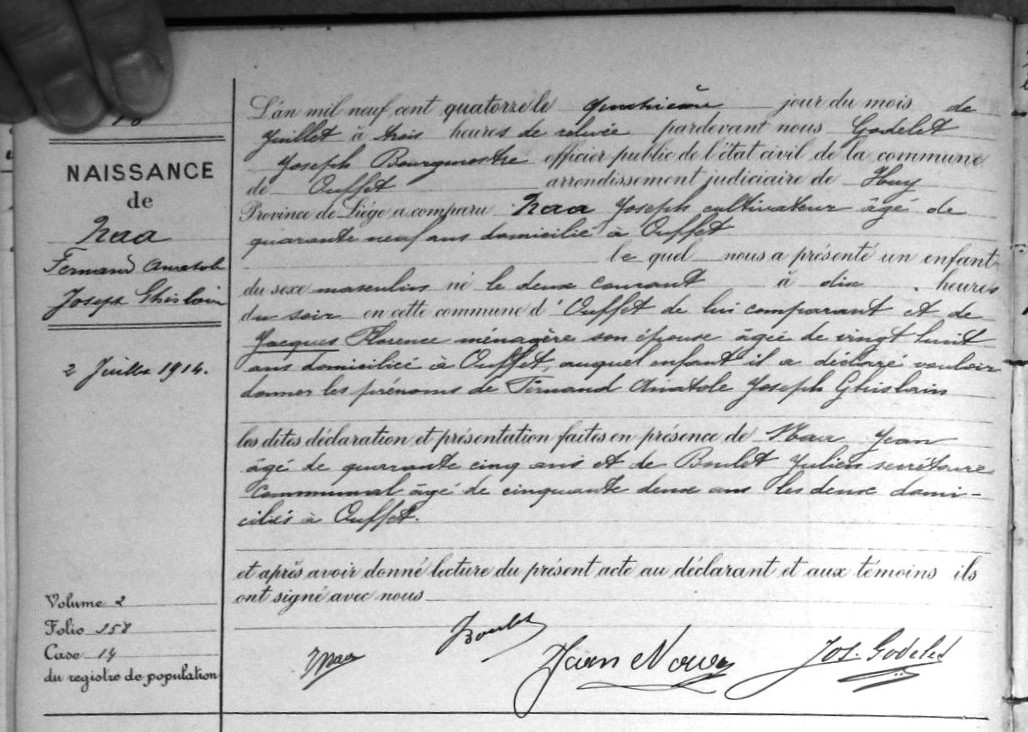 NAISSANCE
de
Naa
Fernand Anatole
Joseph Ghislain
2 Juillet 1914.
Volume 2
Folio 157
Case 14
du registre de population
L'an mil neuf cent quatorze le quatrième jour du mois de
Juillet à trois heures de relevée pardevant nous Godelet
Joseph Bourgmestre officier public de l'état civil de la commune
de Ouffet arrondissement judiciaire de Huy
Province de Liége a comparu Naa Joseph cultivateur âgé de
quarante neuf ans domicilié à Ouffet
le quel nous a présenté un enfant
du sexe masculin né le deux courant à dix heures
du soir en cette commune d'Ouffet de lui comparant et de
Jacques Florence ménagère son épouse âgée de vingt huit
ans domicilié à Ouffet, auquel enfant il a déclaré vouloir
donner les prénoms de Fernand Anatole Joseph Ghislain
les dites déclaration et présentation faites en présence de Naa Jean
âgé de quarante cinq ans et de Boulet Julien secrétaire
communal âgé de cinquante deux ans les deux domi-
ciliés à Ouffet.
et après avoir donné lecture du présent acte au déclarant et aux témoins ils
ont signé avec nous
JBoulet
Jean
Jos. Godelet